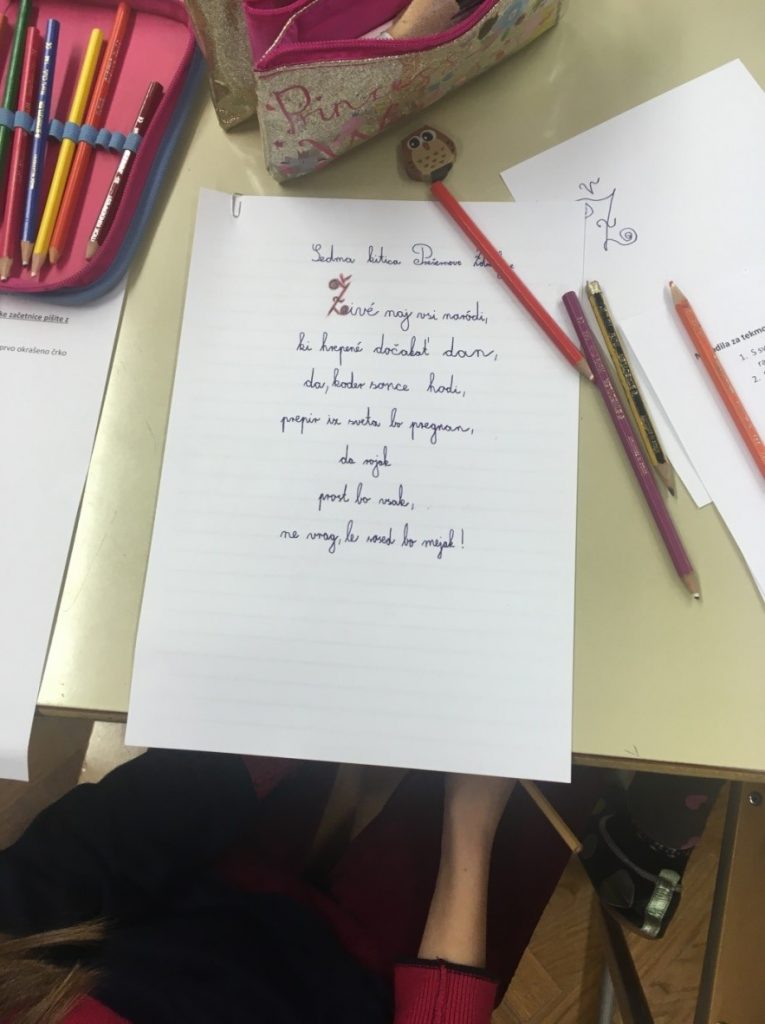 Princess
Sedma kitica Prešernove
Živé naj vsi naródi,
ki hrepené dočakat' dan,
da, koder sonce hodi,
prepir iz sveta bo pregnan,
da rojak
prost bo vsak,
ne vrag, le sosed bo mejak!
ke začetnice pišite z
prvo okrašeno črko
dila za tekmo
1. S sv
ra
2.